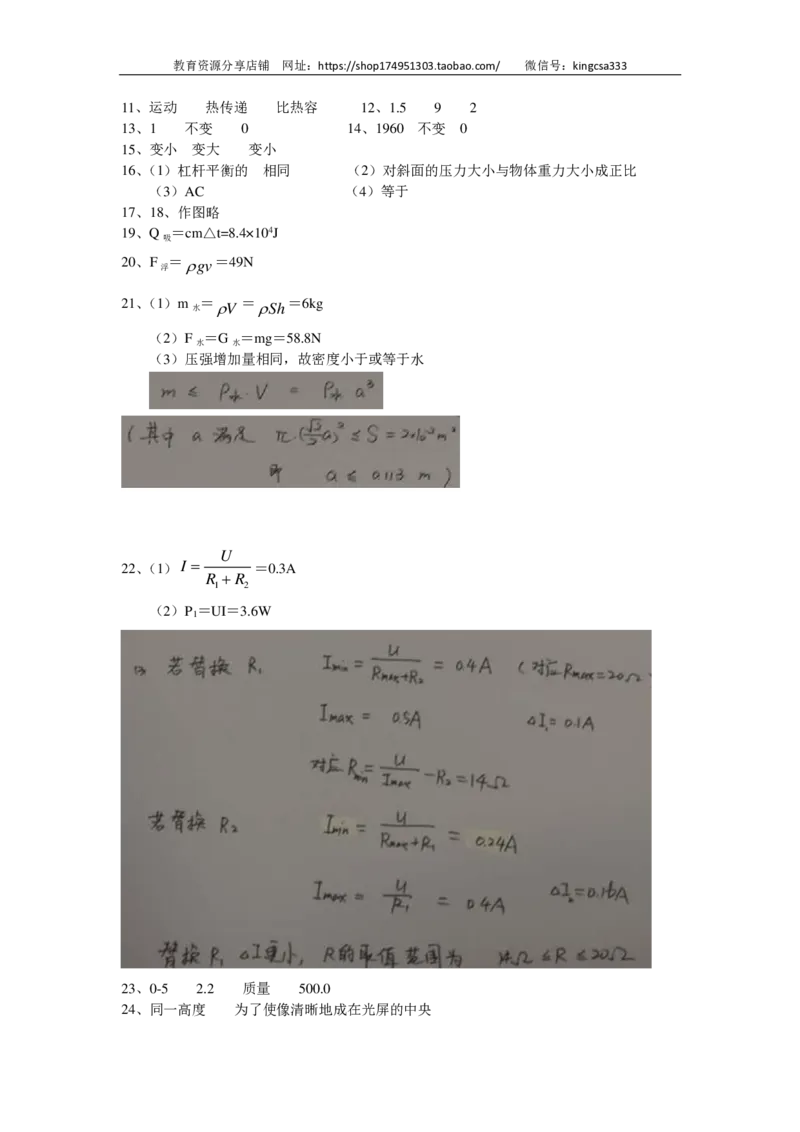 教育资源分享店铺 网址：https://shop174951303.taobao.com/ 微信号：kingcsa333
11、运动 热传递 比热容 12、1.5 9 2
13、1 不变 0 14、1960 不变 0
15、变小 变大 变小
16、（1）杠杆平衡的 相同 （2）对斜面的压力大小与物体重力大小成正比
（3）AC （4）等于
17、18、作图略
19、Q吸＝cm△t=8.4×10⁴J
20、F浮＝ρgv＝49N
21、（1）m水＝ρV＝ρSh＝6kg
（2）F水＝G水＝mg＝58.8N
（3）压强增加量相同，故密度小于或等于水
m ≤ ρ水·V = ρ水 a³
（其中 a 满足 π·(√2/2 a)² ≤ S = 2×10⁻²m²
即 a ≤ 0.113 m）
22、（1）I = U/(R₁+R₂) ＝0.3A
（2）P₁＝UI＝3.6W
(3) 若替换 R₁ Imin = U/(Rmax+R₂) = 0.4A （对应Rmax=20Ω
Imax = 0.5A ΔI₁=0.1A
对应Rmin= U/Imax -R₂=14Ω
若替换 R₂ Imin = U/(Rmax+R₁) = 0.24A
Imax = U/R₁ = 0.4A ΔI₂=0.16A
替换R₁ ΔI更小，R的取值范围为 14Ω ≤R ≤20Ω
23、0-5 2.2 质量 500.0
24、同一高度 为了使像清晰地成在光屏的中央